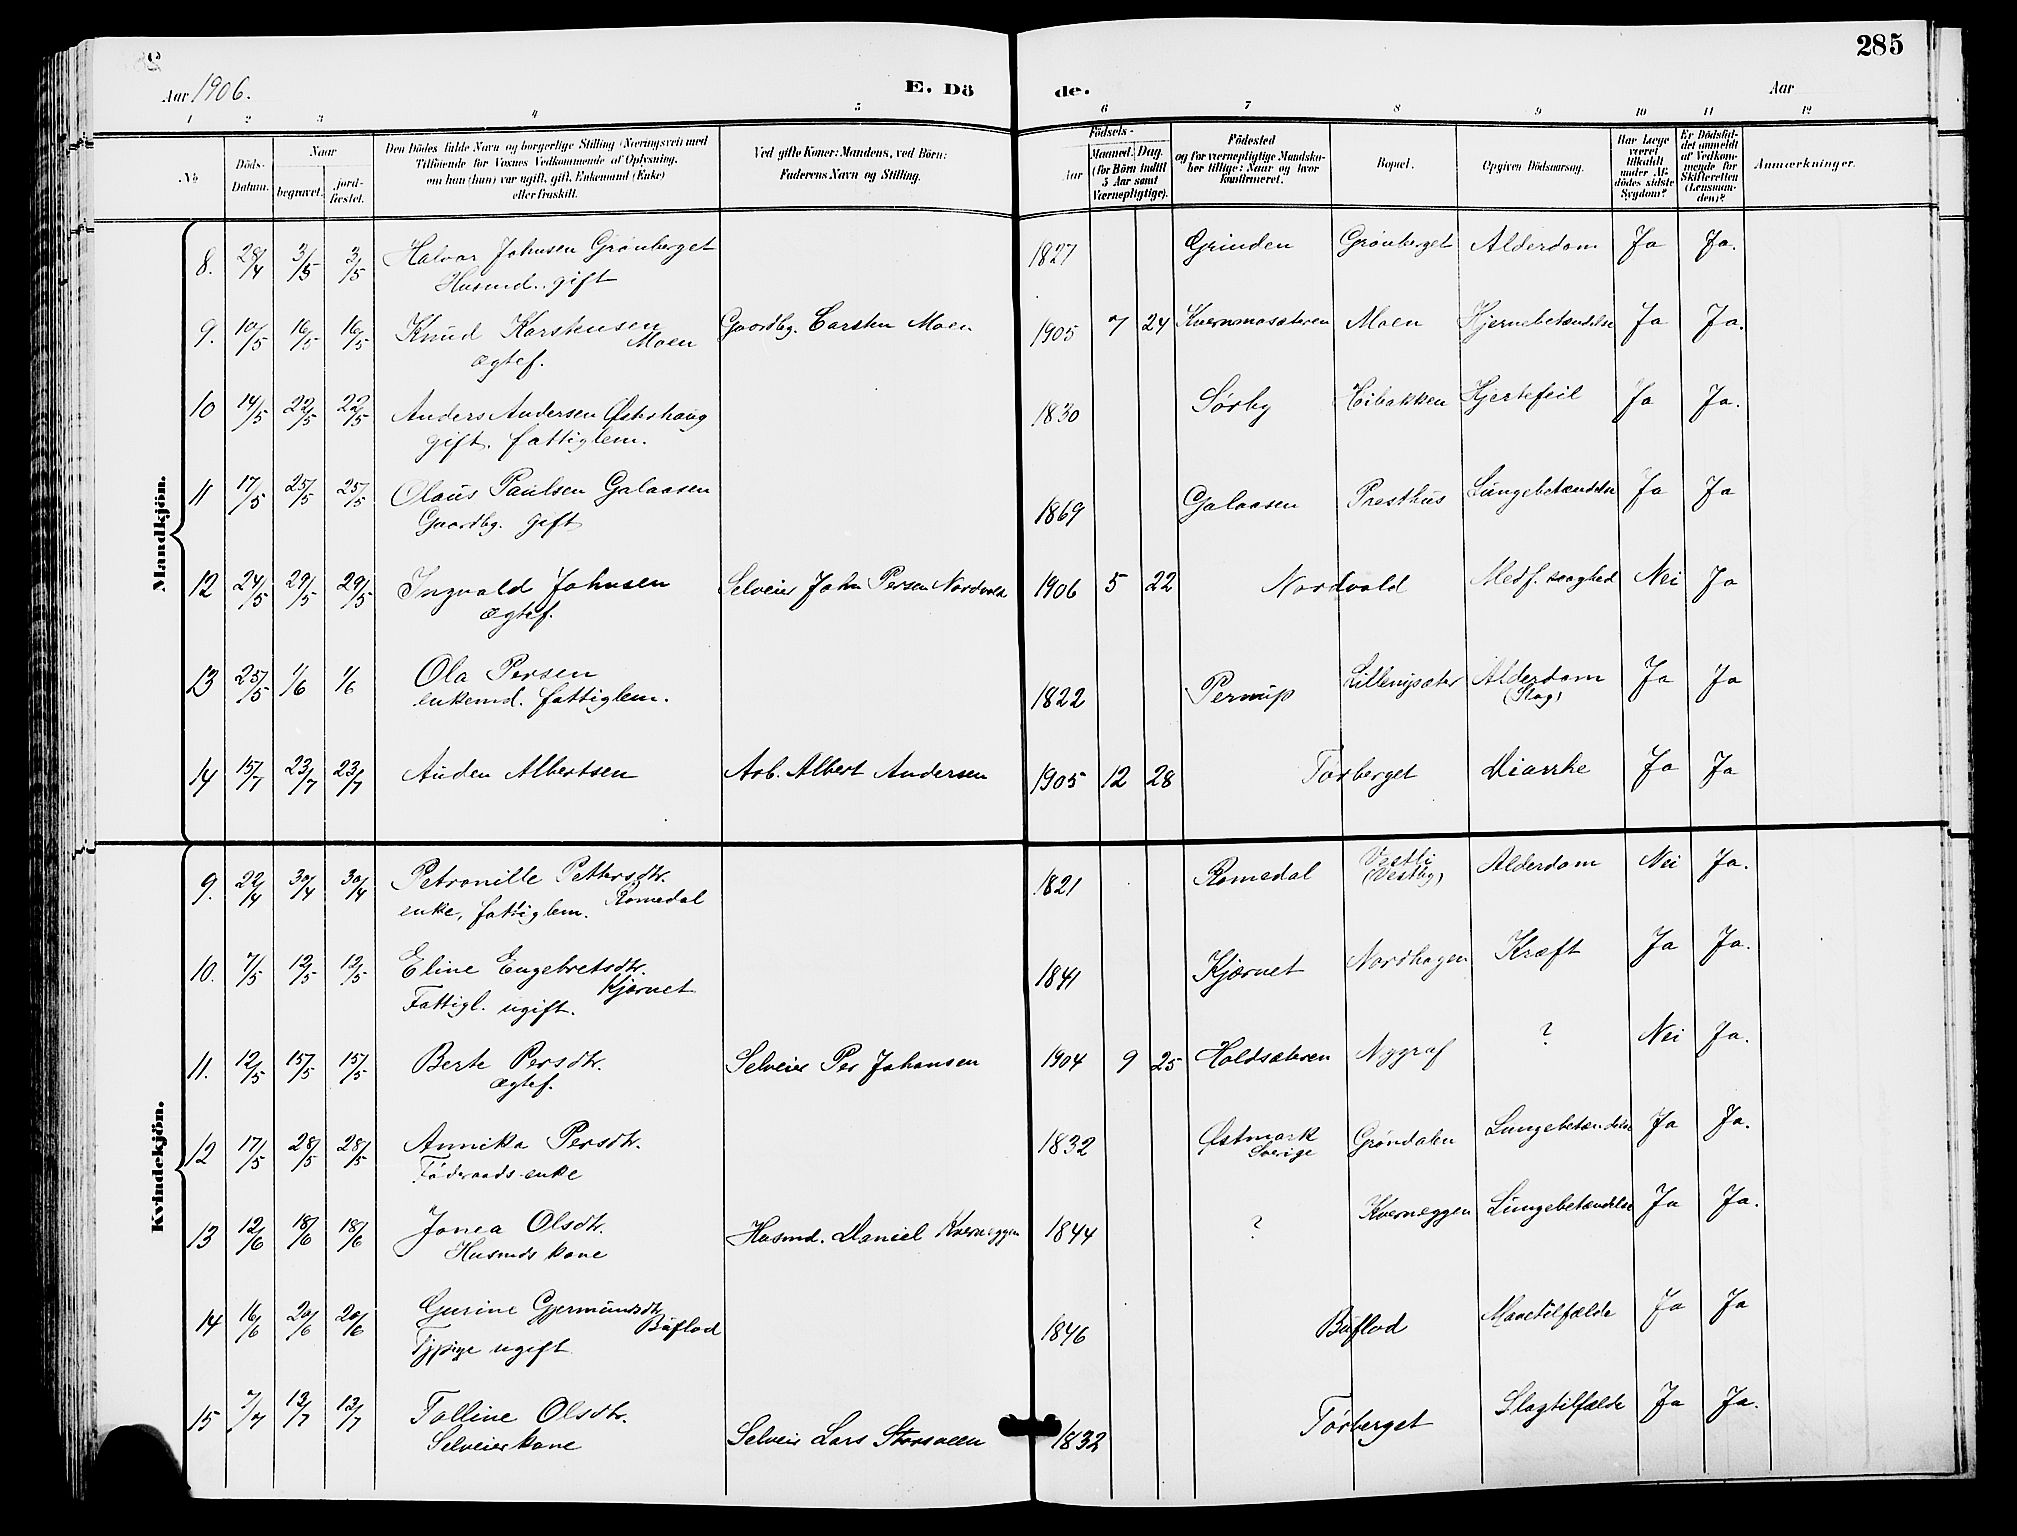 285
Aar 1906.
E. Dö
de.
Aar
1 2 3 4 5 6 7 8 9 10 11 12
No
Döds-Datum.
Naar
begravet.
jord-fæstet.
Den Dödes fulde Navn og borgerlige Stilling (Næringsvei) med
Tilföiende for Voxnes Vedkommende af Oplysning,
om han (hun) var ugift, gift, Enkemand (Enke)
eller fraskilt.
Ved gifte Koner: Mandens, ved Börn:
Faderens Navn og Stilling.
Födsels-
Aar
Maaned. Dag
(for Börn indtil
5 Aar samt
Værnepligtige).
Födested
og for værnepligtige Mandska-
ber tillige: Naar og hvor
konfirmeret.
Bopæl.
Opgiven Dödsaarsag.
Har Læge
været
tilkaldt
under Af-
dödes sidste
Sygdom?
Er Dödsfal-
det anmeldt
af Vedkom-
mende for
Skifteretten
(Lensman-
den)?
Anmærkninger.
Mandkjön.
8. 28/4 3/5 3/5 Halvor Johnsen Grönberget 1827 Grinden Grönberget Alderdom Ja Ja.
Husmd. gift
9. 10/5 16/5 16/5 Knud Karstensen Gaardbg. Carsten Moen 1905 7 24 Kvernmosæteren Moen Hjernebetændelse Ja Ja.
Moen
ægtef.
10 14/5 22/5 22/5 Anders Andersen Østshaug 1830 Sørby Høibakken Hjertefeil Ja Ja.
gift. fattiglem.
11 17/5 25/5 25/5 Olaus Paulsen Galaasen 1869 Galaasen Presthus Lungebetændelse Ja Ja
Gaardbg. gift
12 24/5 29/5 29/5 Ingvald Johnsen Selveier John Persen Nordvold 1906 5 22 Nordvold Medf. svaghed Nei Ja
ægtef.
13 25/5 1/6 1/6 Ola Persen 1822 Pernup Lillenysæter Alderdom Ja Ja
enkemd. fattiglem. (Slag)
14 15/7 23/7 23/7 Auden Albertsen Arb. Albert Andersen 1905 12 28 Törberget Diarrhe Ja Ja
Kvindekjön.
9. 22/4 30/4 30/4 Petronille Pettersdtr. 1821 Romedal Vestli (Vestby) Alderdom Nei Ja.
enke, fattiglem. Romedal
10. 7/5 12/5 12/5 Eline Engebretsdtr. 1841 Kjærnet Nordhagen Kræft Ja Ja.
Kjærnet
Fattigl. ugift.
11. 12/5 15/5 15/5 Berte Persdtr. Selveier Per Johansen 1904 9 25 Holdsæteren Nygraf ? Nei Ja.
ægtef.
12 17/5 28/5 28/5 Annika Persdtr. 1832 Østmark Sverige Gröndalen Lungebetændelse Ja Ja.
Föderaads-enke
13 12/6 18/6 18/6 Jonea Olsdtr. Husmd. Daniel Kverneggen 1844 ? Kverneggen Lungebetændelse Ja Ja.
Husmds kone
14 16/6 20/6 20/6 Gurine Gjermundsdtr. 1846 Buflod Mavetilfælde Ja Ja
Buflod
Tjpige ugift
15 7/7 12/7 12/7 Talline Olsdtr. Selveier Lars Storsveen 1832 Törberget Slagtilfælde Ja Ja.
Selveierkone